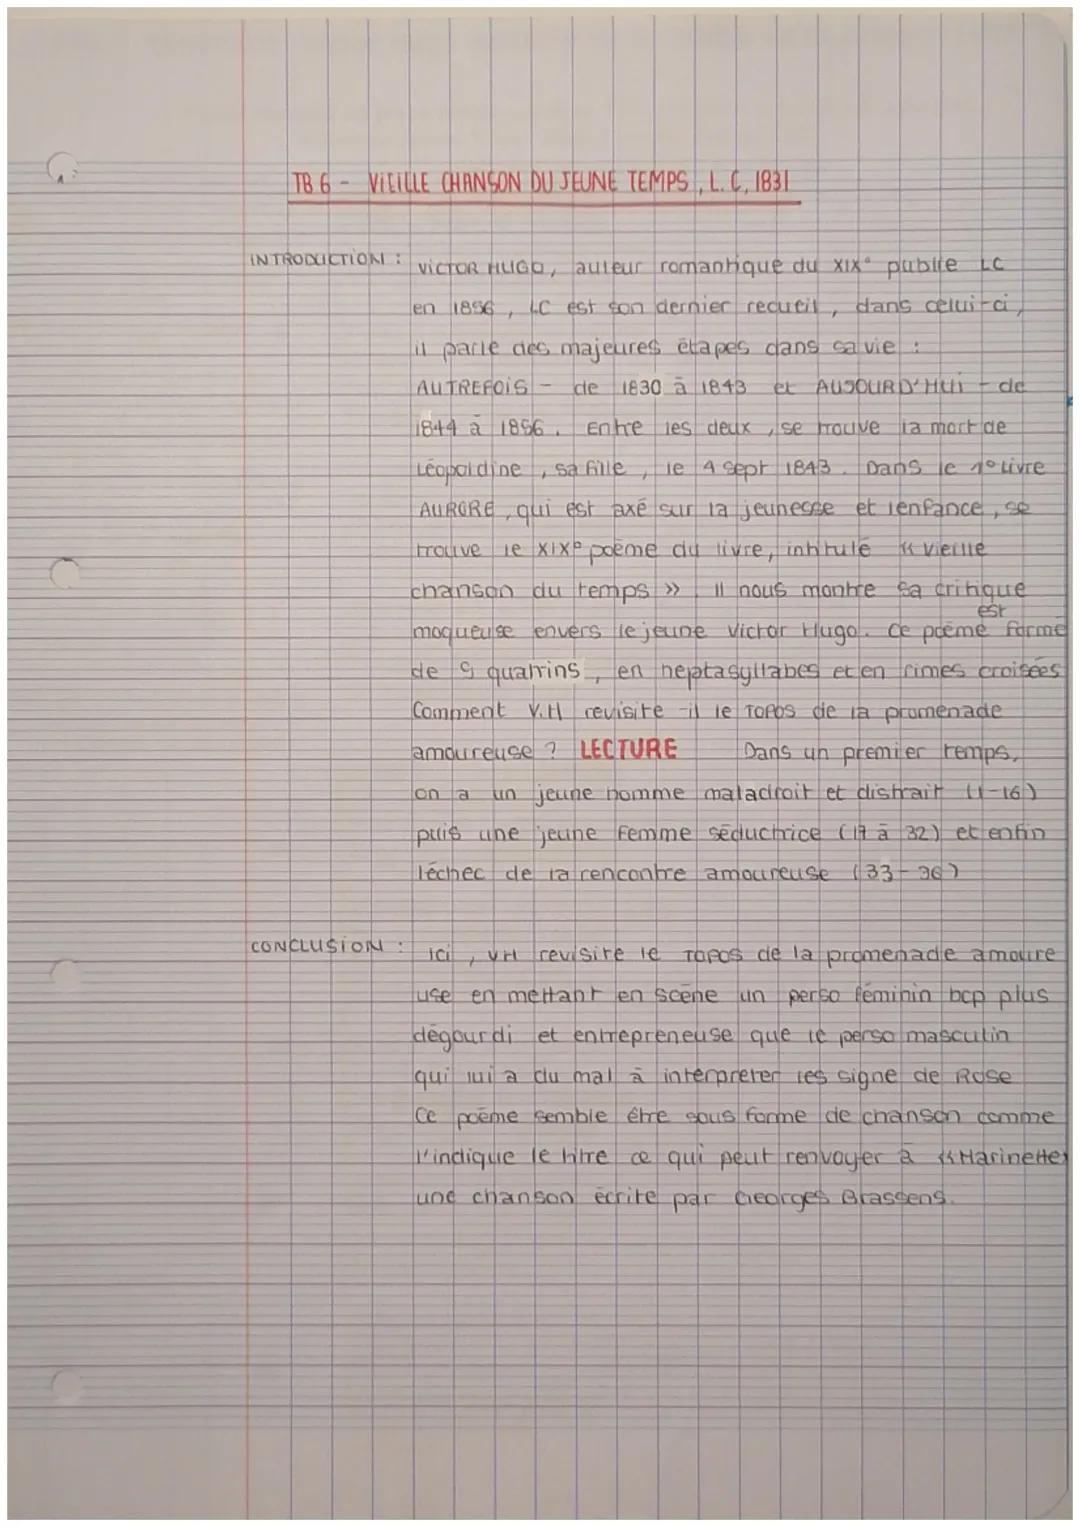 TB 6 - VIEILLE CHANSON DU JEUNE TEMPS, L.C, 1831
INTRODUCTION : VICTOR HUGO, auteur romantique du XIX° publie LC
en 1856, LC est son dernier recueil, dans celui-ci,
il parle des majeures étapes dans sa vie :
AUTREFOIS - de 1830 à 1843 et AUJOURD'HUI - de
1844 à 1856. Entre les deux, se trouve la mort de
Léopoldine, sa fille, le 4 sept 1843. Dans le 1° Livre
AURORE, qui est axé sur la jeunesse et lenfance, se
trouve le XIXe poème du livre, intitulé « vieille
chanson du temps ». Il nous montre sa critique
moqueuse envers le jeune Victor Hugo. Ce poème est formé
de 9 quatrins, en heptasyllabes et en rimes croisées
Comment V.H revisite-il le TOPOS de la promenade
amoureuse ? LECTURE Dans un premier temps,
on a un jeune homme maladroit et distrait (1-16)
puis une jeune femme séductrice (17 à 32) et enfin
léchec de la rencontre amoureuse (33-36)
CONCLUSION : ici, VH revisite le TOPOS de la promenade amoure
use en mettant en scène un perso féminin bcp plus
dégourdi et entrepreneuse que le perso masculin
qui lui a du mal à interpreter les signe de Rose
Ce poème semble être sous forme de chanson comme
l'indique le titre ce qui peut renvoyer à «Marinette»
une chanson écrite par Georges Brassens.